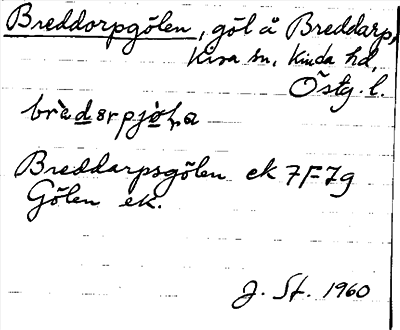 Breddorpgölen, göl å Breddarp,
Kisa sn, Kinda hd,
Östg. l.
Breddarpsgölen ek 7F7g
Gölen ek.
J. St. 1960